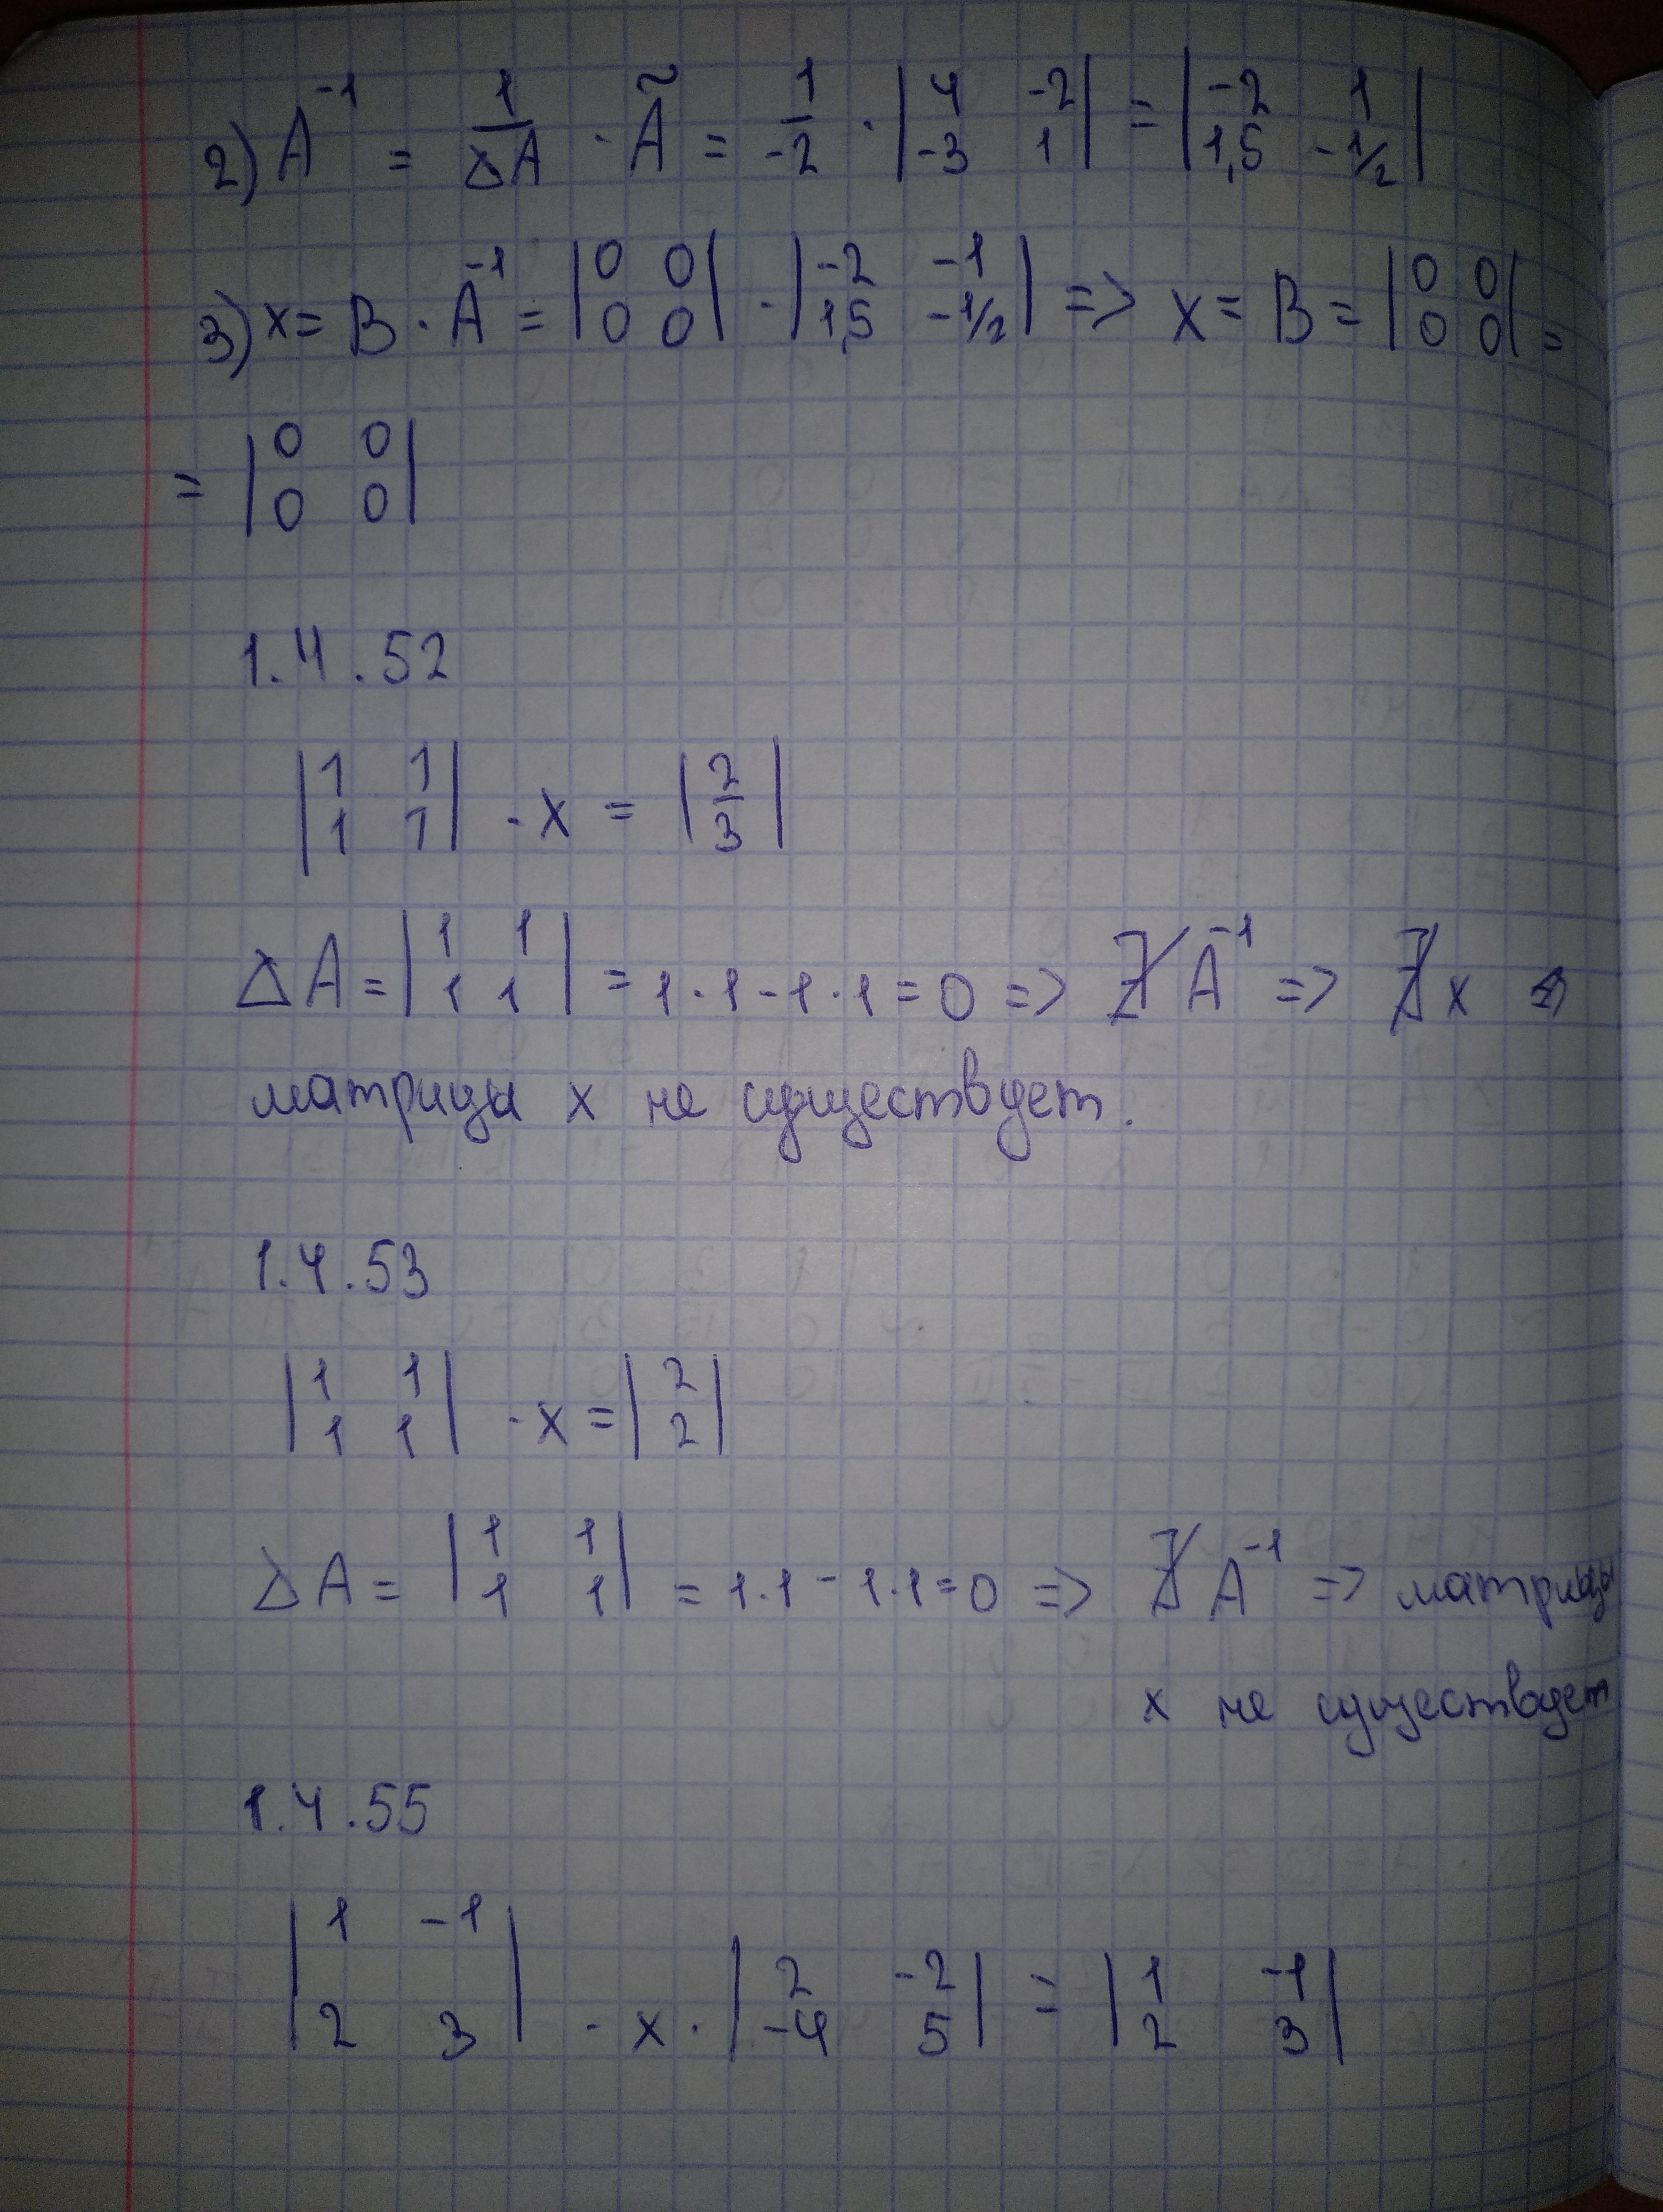 2) A⁻¹ = 1/ΔA · Ã = 1/-2 · |4 -2; -3 1| = |-2 1; 1,5 -1/2|
3) x = B · A⁻¹ = |0 0; 0 0| · |-2 -1; 1,5 -1/2| => x = B = |0 0; 0 0| =
= |0 0; 0 0|
1.4.52
|1 1; 1 1| · x = |2/3|
ΔA = |1 1; 1 1| = 1·1 - 1·1 = 0 => ∄ A⁻¹ => ∄ x =>
матрицы x не существует.
1.4.53
|1 1; 1 1| · x = |2; 2|
ΔA = |1 1; 1 1| = 1·1 - 1·1 = 0 => ∄ A⁻¹ => матрицы
x не существует
1.4.55
|1 -1; 2 3| · x · |2 -2; -4 5| = |1 -1; 2 3|